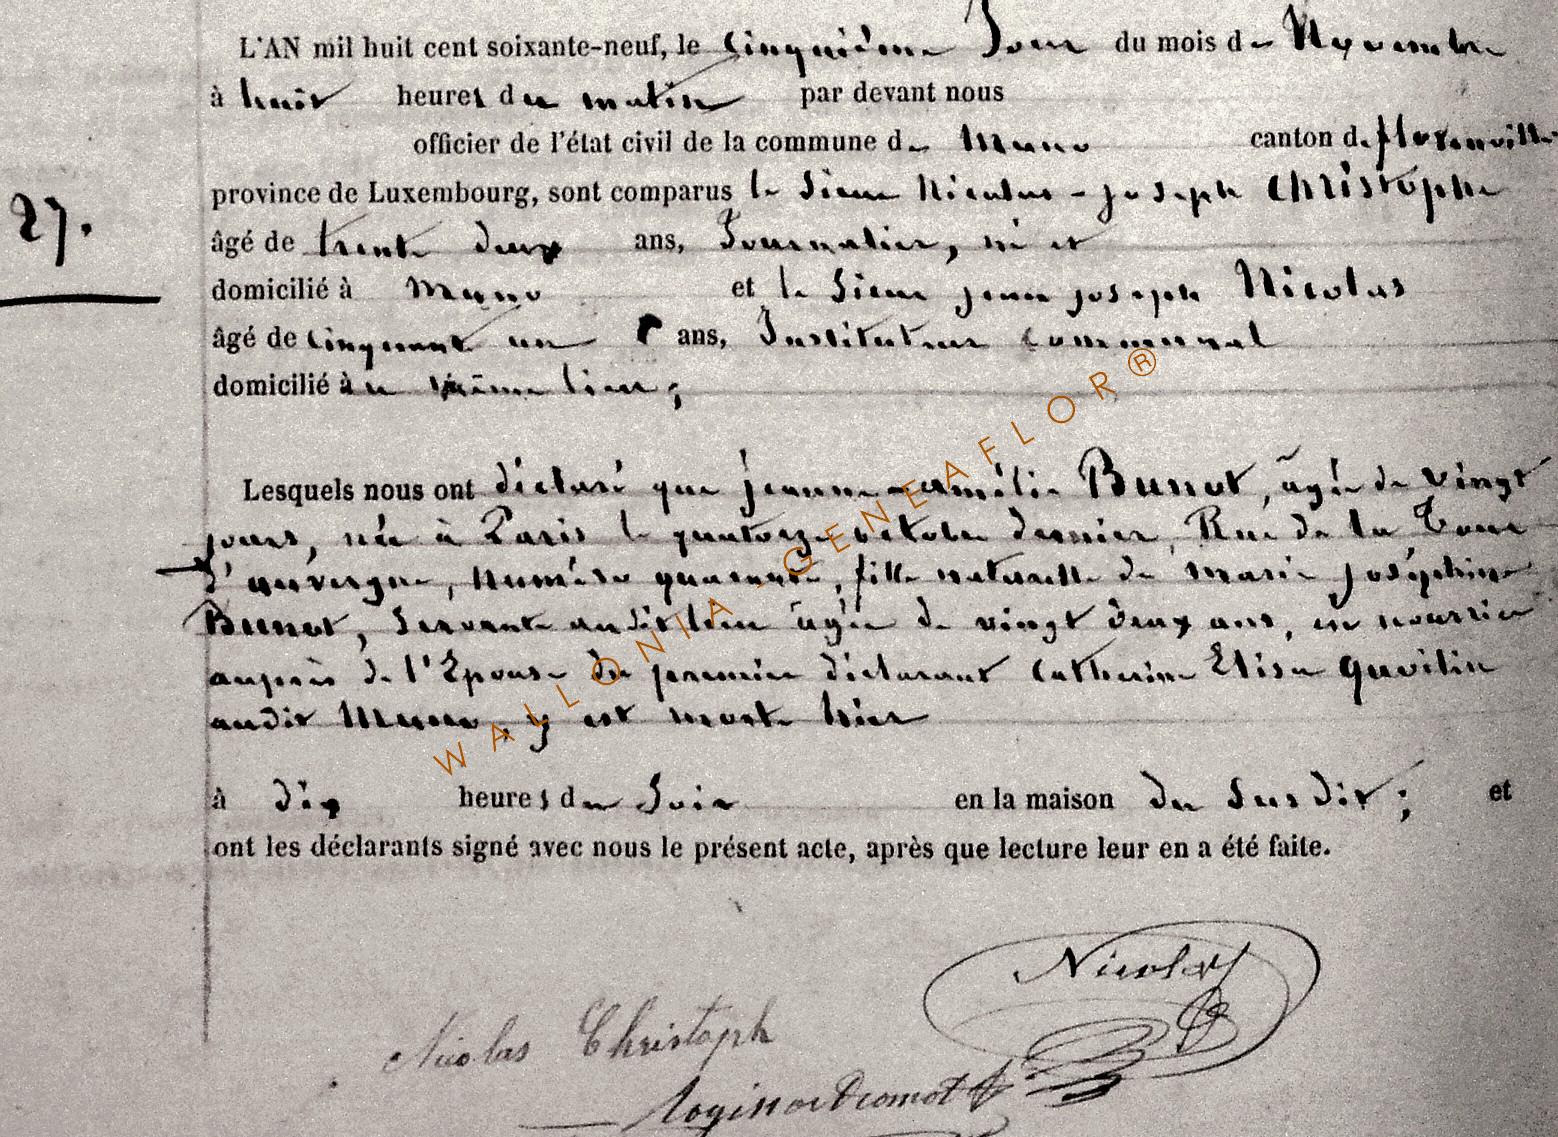 L'AN mil huit cent soixante-neuf, le cinquième Jour du mois de Novembre
à huit heures du matin par devant nous
officier de l'état civil de la commune de Muno canton de florenville
province de Luxembourg, sont comparus le Sieur Nicolas-joseph Christophe
27.
âgé de trente deux ans, Journalier, né et
domicilié à Muno et le Sieur jean joseph Nicolas
âgé de cinquante un ans, Instituteur communal
domicilié au même lieu;
Lesquels nous ont déclaré que jeanne-amélie Bunot, âgée de vingt
jours, née à Paris le quatorze octobre dernier, Rue de la Tour
d'auvergne, numéro quarante, fille naturelle de marie joséphine
Bunot, Servante audit lieu âgée de vingt deux ans, en nourrice
auprès de l'Epouse du premier déclarant Catherine Elisa Gavilin
audit Muno, y est morte hier
à dix heures du Soir en la maison du Susdit; et
ont les déclarants signé avec nous le présent acte, après que lecture leur en a été faite.
Nicolas
Nicolas Christoph
WALLONIA-GENEAFLOR®